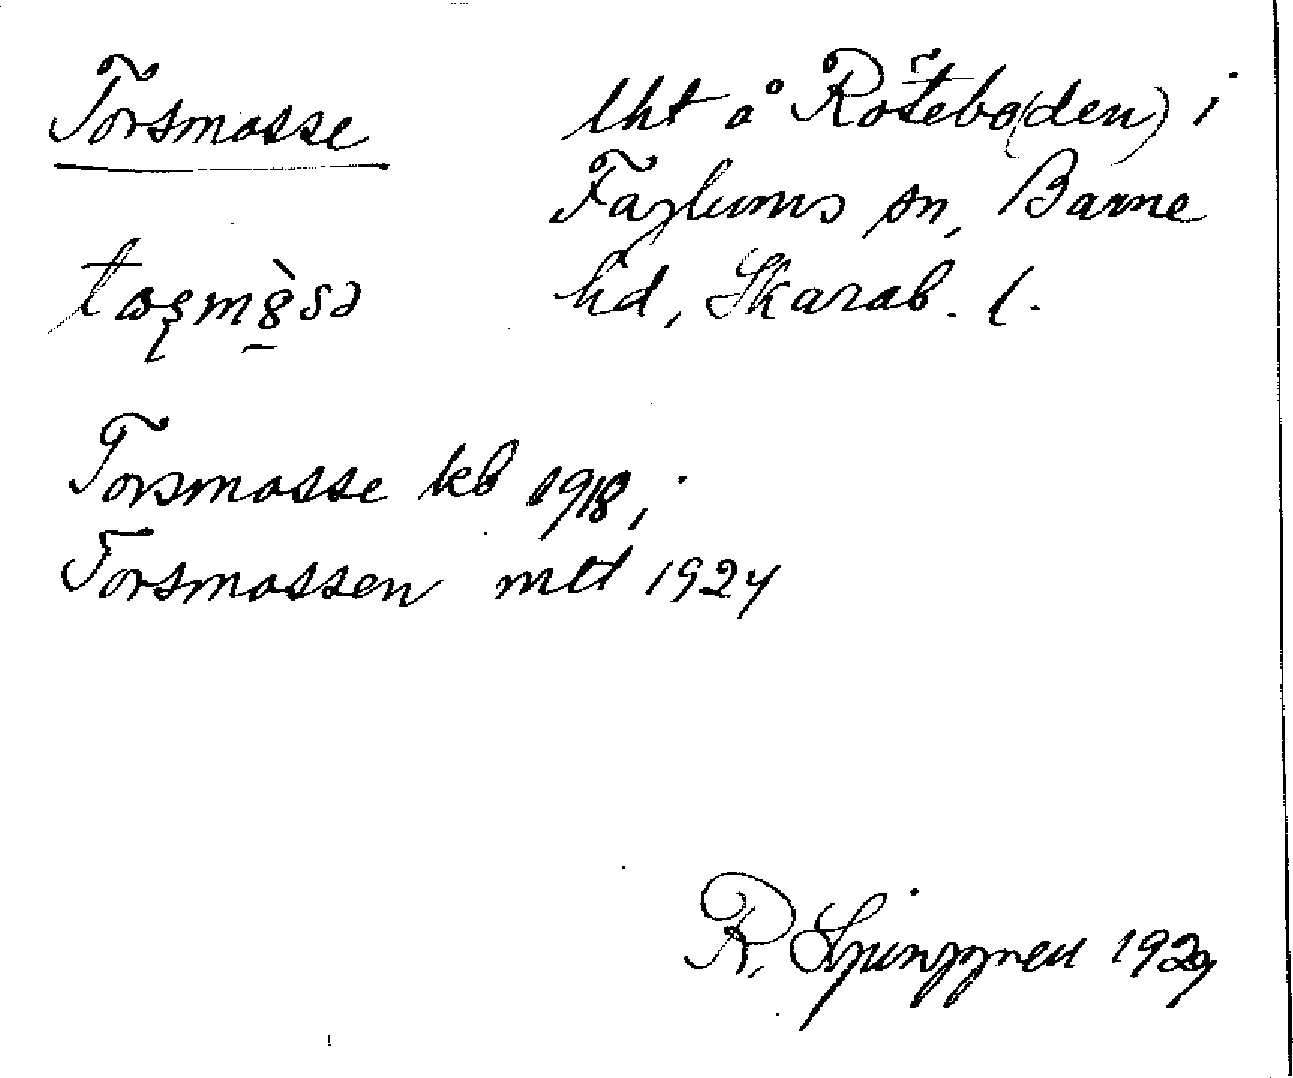 Torsmosse
lht å Rotebo(den) i
Faglums sn, Barne
hd, Skarab. l.
Torsmosse kb 1918;
Torsmossen mtl 1924
R. Ljunggren 1929